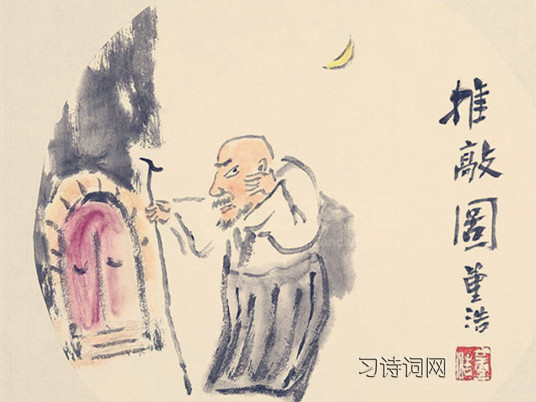 推敲圖
董浩
习诗词网